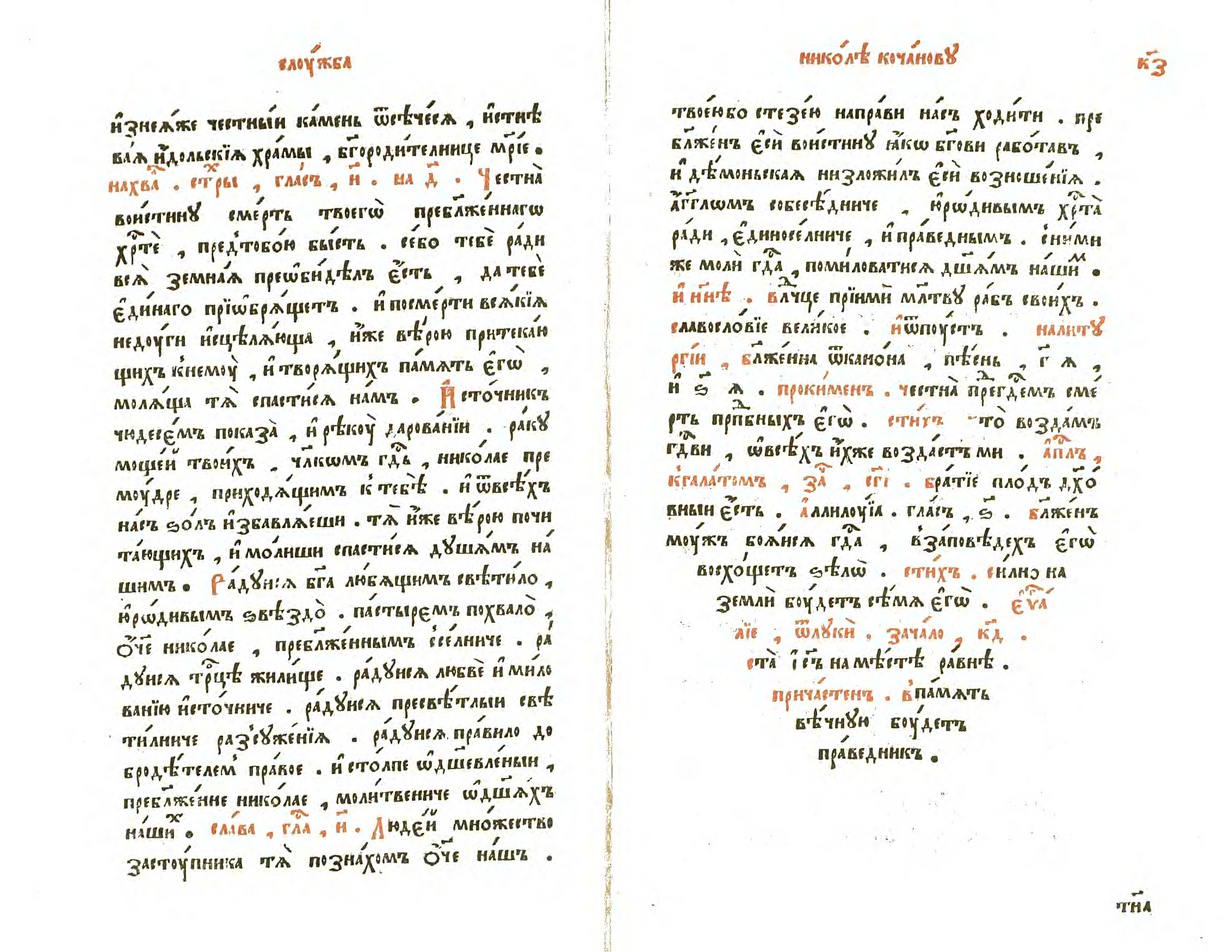 слꙋ́жба
и҆знеѧ́же че́стныи ка́мень ѿсѣ́чесѧ , и҆стнѣ
ваѧ и҆́дольскїѧ хра́мы , бг҃ороди́телнице мр҃і́е .
нахва̑ . ст́ры , гла́съ , и҃ . на д҃ . Че́стна̀
вои́стинꙋ сме́рть твоегѡ̀ пребл҃же́ннагѡ
хрт҃ѐ , пред̾тобо́ю бы́сть . се́бо тебѐ ра́ди
всѧ̀ земна́ѧ преѡби́дѣлъ є҆́сть , да тебѐ
є҆ди́наго прїѡбрѧ́щетъ . и҆ посме́рти всѧ́кїѧ
недоу́ги и҆сцѣлѧ́юща , и҆́же вѣ́рою притекаю́
щихъ к̾немоу̀ , и҆ творѧ́щихъ па́мѧть є҆гѡ̀ ,
молѧ́ща тѧ̀ спасти́сѧ на́мъ . И҆сто́чникъ
чюдесе́мъ показа̀ , и҆ рѣкоу̀ дарова́нїи . ра́кꙋ
моще́й твои́хъ , чл҃кѡмъ гд҃ь , нико́лае пре
моу́дре , приходѧ́щимъ к̾ тебѣ̀ . и҆ ѿвсѣ́хъ
на́съ ѕо́лъ и҆збавлѧ́еши . тѧ̀ и҆́же вѣ́рою почи
та́ющихъ , и҆ мо́лиши спасти́сѧ дꙋша́мъ на́
шимъ . Ра́дꙋисѧ бг҃а лю́бѧщимъ свѣти́ло ,
ю҆ро́дивымъ ѕвѣздо̀ . па́стыремъ похвало̀ ,
ѻ҆́ч҃е нико́лае , пребл҃же́ннымъ с̾се́лниче . ра́
дꙋисѧ тр҃цѣ жили́ще . ра́дꙋисѧ любвѐ и҆ мило
ва́нїю и҆сто́чниче . ра́дꙋисѧ пресвѣ́тлыи свѣ
ти́лниче раз̾сꙋже́нїѧ . ра́дꙋисѧ пра́вило до
бродѣ́телем̾ пра́вое . и҆ сто́лпе ѡ҆дш҃евле́ныи ,
пребл҃же́нне нико́лае , моли́твениче ѡ҆ дш҃а́хъ
на́шиⷯ . сла́ва , гла̑ , и҃ . Людє́й мно́жество
засто́ꙋпника тѧ̀ позна́хомъ ѻ҆́ч҃е на́шъ .
нико́лѣ коча́новꙋ
к҃з
твоею́бо стезе́ю напра́ви на́съ ходи́ти . пре
бл҃же́нъ є҆сѝ вои́стинꙋ ꙗ҆́кѡ бг҃ови рабо́тавъ ,
и҆ дѣ́моньскаѧ низложи́лъ є҆сѝ возноше́нїѧ .
а҆́гг҃лѡмъ собесѣ́дниче , ю҆рѡ́дивымъ хрт҃а̀
ра́ди , є҆диносе́лниче , и҆ пра́веднымъ . с̾ни́ми
же молѝ гд҃а , поми́ловатисѧ дш҃а́мъ на́шиⷨ .
и҆ нн҃ѣ . влⷣчце прїимѝ мл҃твꙋ ра́бъ свои́хъ .
славосло́вїе вели́кое . и҆ѿпꙋ́стъ . налитꙋ
ргі́и , бл҃же́нна ѿкано́на , пѣ́снь , г҃ ѧ ,
и҆ ѕ҃ ѧ . проки́менъ . че́стна̀ пред̾гд҃емъ сме́
рть прпⷣбныхъ є҆гѡ̀ . сти́хъ что̀ возда́мъ
гдⷭ҇ви , ѡ҆всѣ́хъ и҆́хже возда́стъ ми . а҆пⷭ҇лъ ,
к̾гала́томъ , за̑ , сг҃і . бра́тїе пло́дъ дх҃о́
вныи є҆́сть . а҆ллилꙋ́їа . гла́съ , ѕ҃ . бл҃же́нъ
мо́ꙋжъ боѧ́исѧ гд҃а , в̾за́повѣдехъ є҆гѡ̀
восхо́щетъ ѕѣ́лѡ . сти́хъ . си́лно на
землѝ бо́ꙋдетъ сѣ́мѧ є҆гѡ̀ . є҆ѵⷢ҇а́
лїе , ѿлꙋкѝ . зача́ло , к҃д .
ста̀ і҆с҃ъ на мѣ́стѣ ра́внѣ .
прича́стенъ . в̾па́мѧть
вѣ́чнꙋю бо́ꙋдетъ
пра́ведникъ .